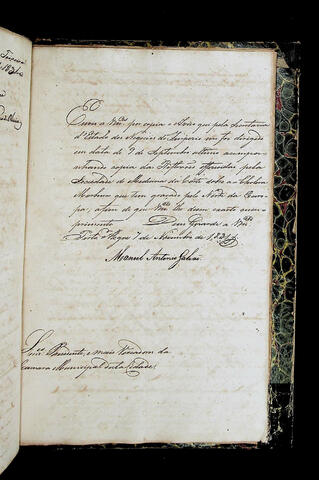 Envio a VMces por copia o Aviso que pela Secretaria
d'Estado dos Negocios do Imperio me foi dirigido
em data de 9 de Setembro ultimo acompa-
nhando copia das Instrucções offerecidas pela
Sociedade de Medicina da Corte sobre a Cholera
Morbus que tem grassado pelo Norte da Euro-
pa, afim de que VMces lhe deem exacto cum-
primento. Deos Guarde a VMces
Porto Alegre 7 de Novembro de 1831
Manoel Antonio Galvão
Snres Presidente, e mais Vereadores da
Camara Municipal desta Cidade